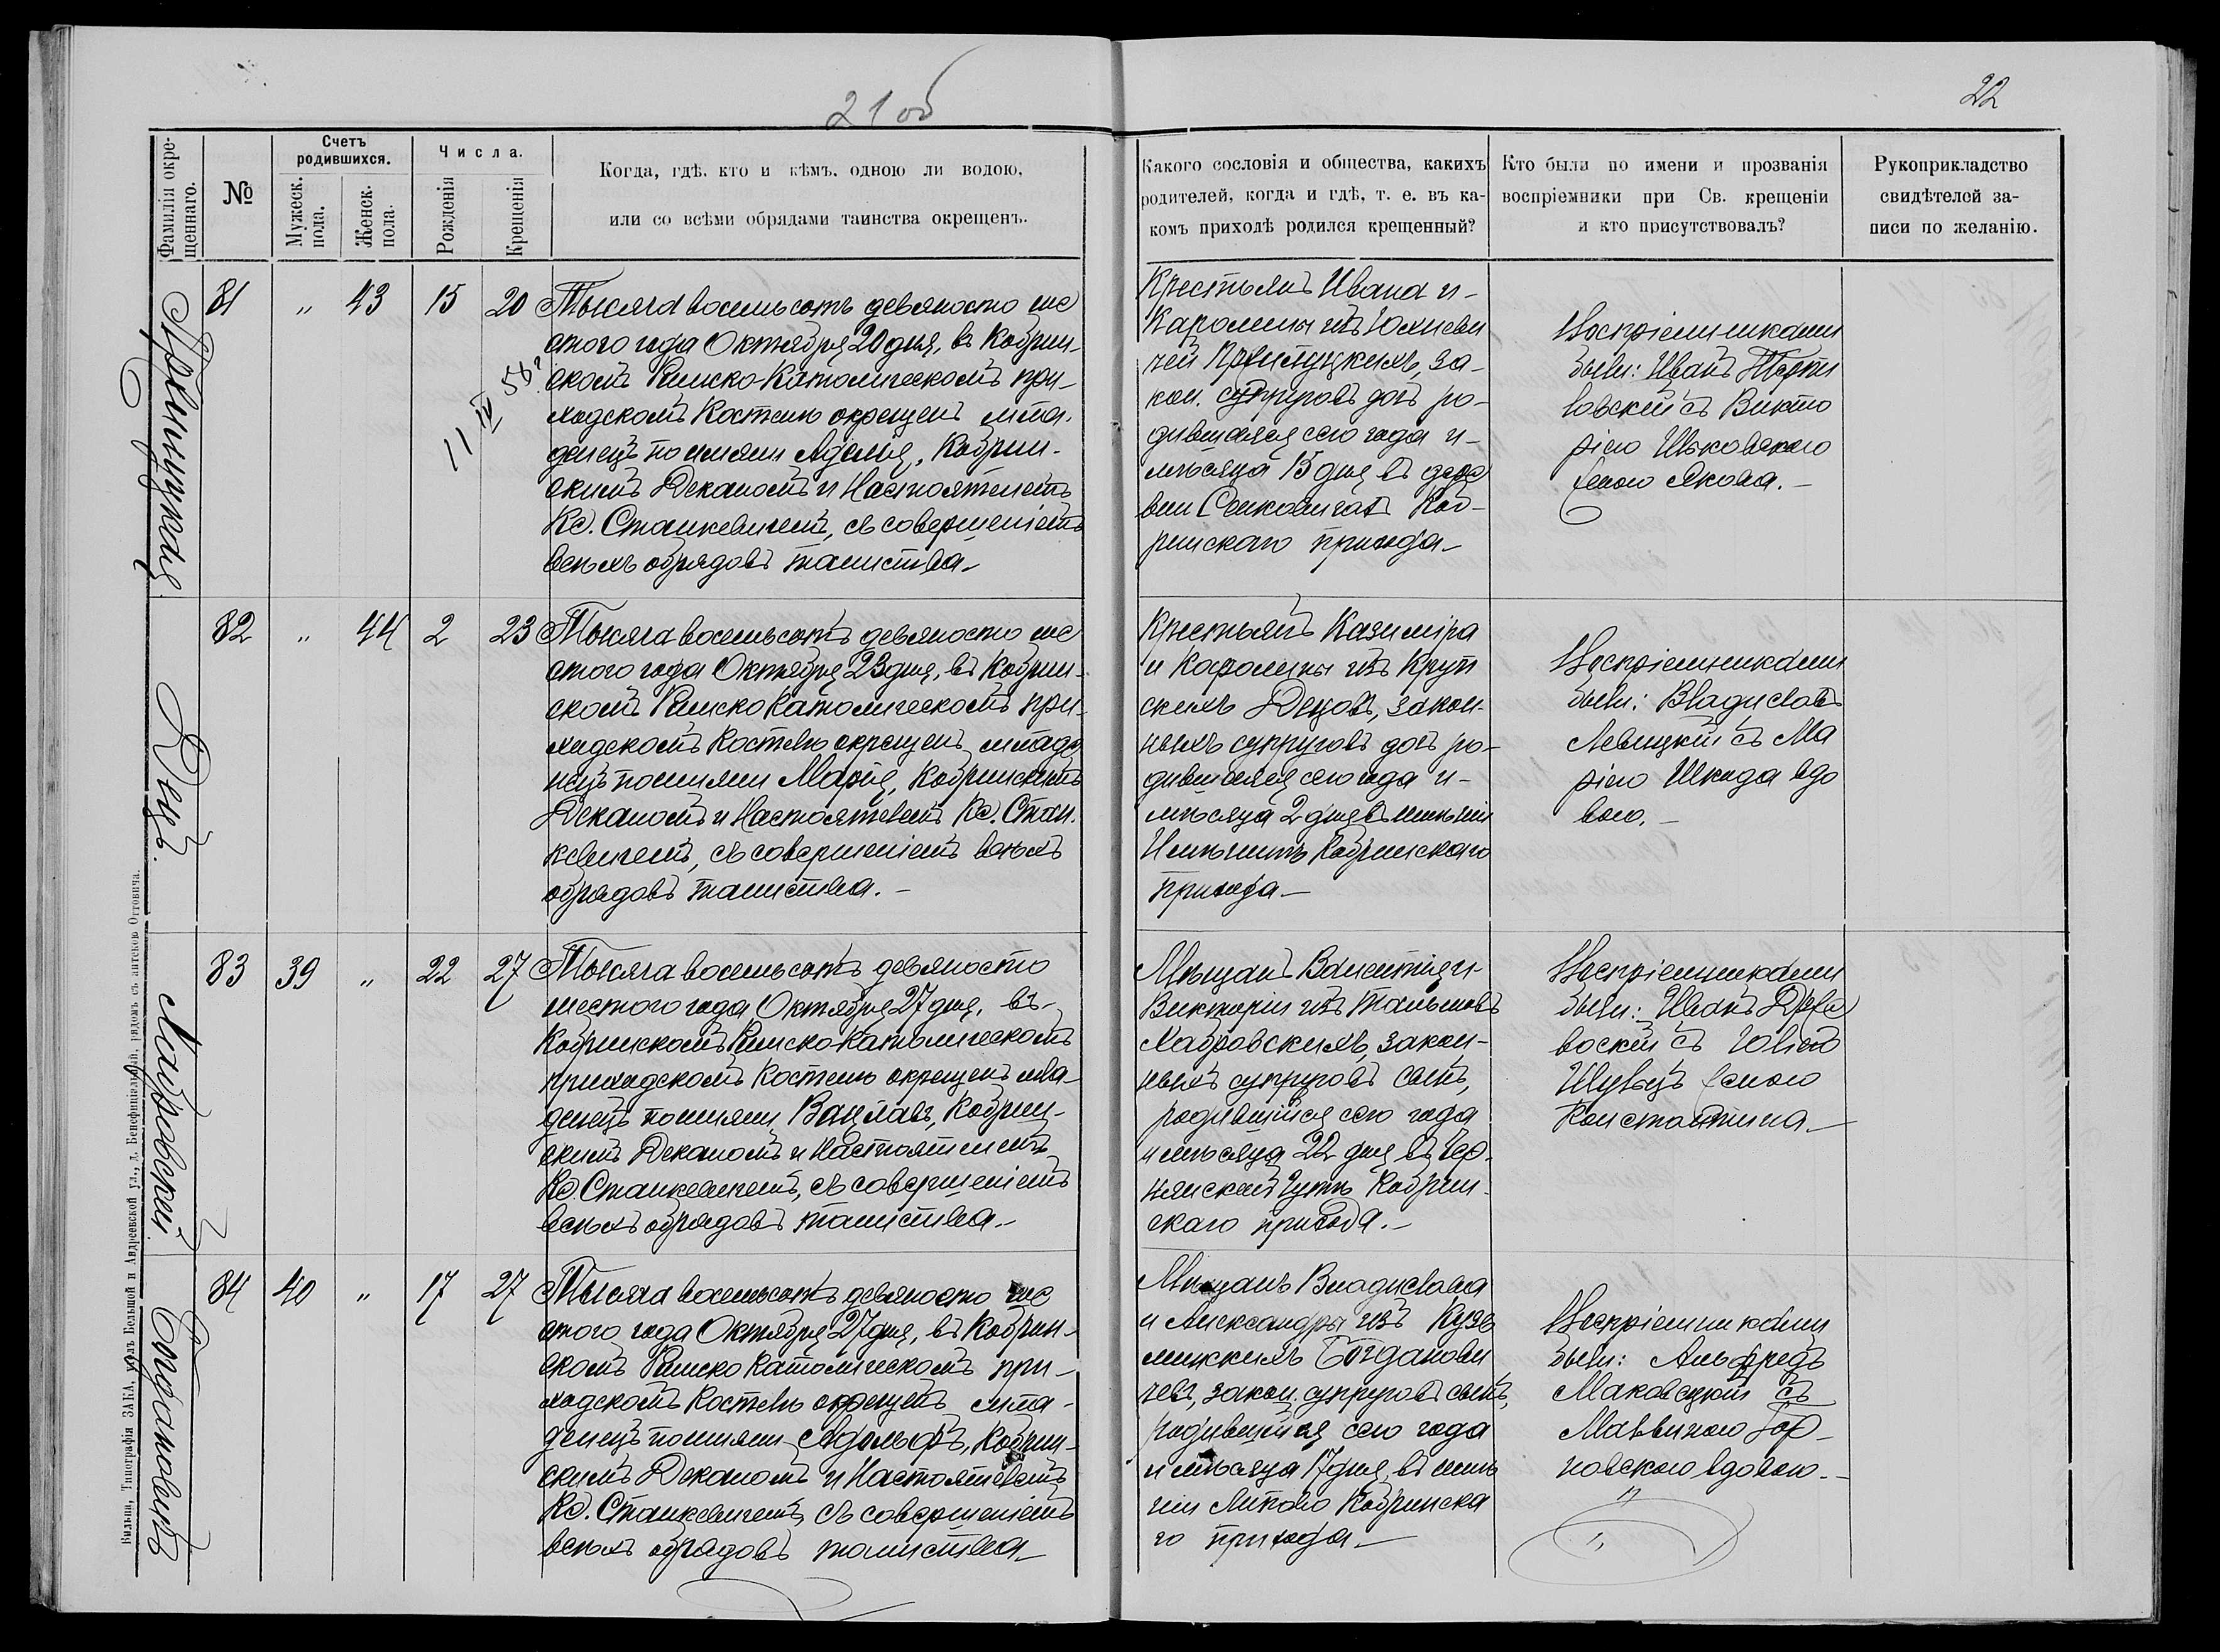 21 об
22
Фамилія окре-
щеннаго.
№
Счетъ
родившихся.
Мужеск.
пола.
Женск.
пола.
Числа.
Рожденія
Крещенія
Когда, гдѣ, кто и кѣмъ, одною ли водою,
или со всѣми обрядами таинства окрещенъ.
Какого сословія и общества, какихъ
родителей, когда и гдѣ, т. е. въ ка-
комъ приходѣ родился крещенный?
Кто были по имени и прозванія
воспріемники при Св. крещеніи
и кто присутствовалъ?
Рукоприкладство
свидѣтелей за-
писи по желанію.
Прилуцкая
81 " 43 15 20
11 IV 58?
Тысяча восемьсотъ девяносто ше
стого года Октября 20 дня, въ Кобрин-
скомъ Римско-Католическомъ при-
ходскомъ Костелѣ окрещенъ мла-
денецъ по имени Аделія, Кобрин-
скимъ Деканомъ и Настоятелемъ
Кс. Станкевичемъ, съ совершеніемъ
всѣхъ обрядовъ таинства.-
Крестьянъ Ивана и-
Каролины изъ Юхневи
чей Прилуцкихъ, за-
кон. супруговъ дочь ро-
дившаяся сего года и-
мѣсяца 15 дня въ дере
вни Сенковичахъ Коб-
ринскаго прихода-
Воспріемниками
были: Иванъ
ловскій съ Викто
ріею
женою Якова.-
Децъ.
82 " 44 2 23
Тысяча восемьсотъ девяносто ше
стого года Октября 23 дня, въ Кобрин-
скомъ Римско Католическомъ при-
ходскомъ Костелѣ окрещенъ младе
нецъ по имени Марія, Кобринскимъ
Деканомъ и Настоятелемъ Кс. Стан-
кевичемъ, съ совершеніемъ всѣхъ
обрядовъ таинства.-
Крестьянъ Казиміра
и Каролины изъ Круп
скихъ Децовъ, закон-
ныхъ супруговъ дочь ро-
дившаяся сего года и-
мѣсяца 2 дня въ имѣніи
Кобринскаго
прихода-
Воспріемниками
были: Владиславъ
Левицкій съ Ма
ріею Шкода вдо
вою.-
Хабровскій
83 39 " 22 27
Тысяча восемьсотъ девяносто
шестого года Октября 27 дня, въ-
Кобринскомъ Римско Католическомъ
приходскомъ Костелѣ окрещенъ мла-
денецъ по имени Вацлавъ, Кобрин-
скимъ Деканомъ и Настоятелемъ
Кс. Станкевичемъ, съ совершеніемъ
всѣхъ обрядовъ таинства.-
Мѣщанъ Викентія и-
Викторіи изъ
Хабровскихъ, закон-
ныхъ супруговъ сынъ,
родившійся сего года
и мѣсяца 22 дня въ Чер-
нянской Кобрин-
скаго прихода.-
Воспріемниками
были: Иванъ
съ Юліею
женою
Константина.-
Богдановичъ
84 40 " 17 27
Тысяча восемьсотъ девяносто ше
стого года Октября 27 дня, въ Кобрин-
скомъ Римско Католическомъ при-
ходскомъ Костелѣ окрещенъ мла-
денецъ по имени Адольфъ, Кобрин-
скимъ Деканомъ и Настоятелемъ
Кс. Станкевичемъ, съ совершеніемъ
всѣхъ обрядовъ таинства-
Мѣщанъ Владислава
и Александры изъ Кузь
мицкихъ Богданови
чевъ, закон. супруговъ сынъ,
родившійся сего года
и мѣсяца 17 дня, въ имѣ
ніи Литово Кобринска
го прихода.-
Воспріемниками
были: Альфредъ
Маковецкій съ
Мальвиною Гор-
новскою вдовою.-
Вильна, Типографія ЗАКА, уголъ Большой и Андреевской ул., д. Бенефиціальный, рядомъ съ аптекою Оттовича.